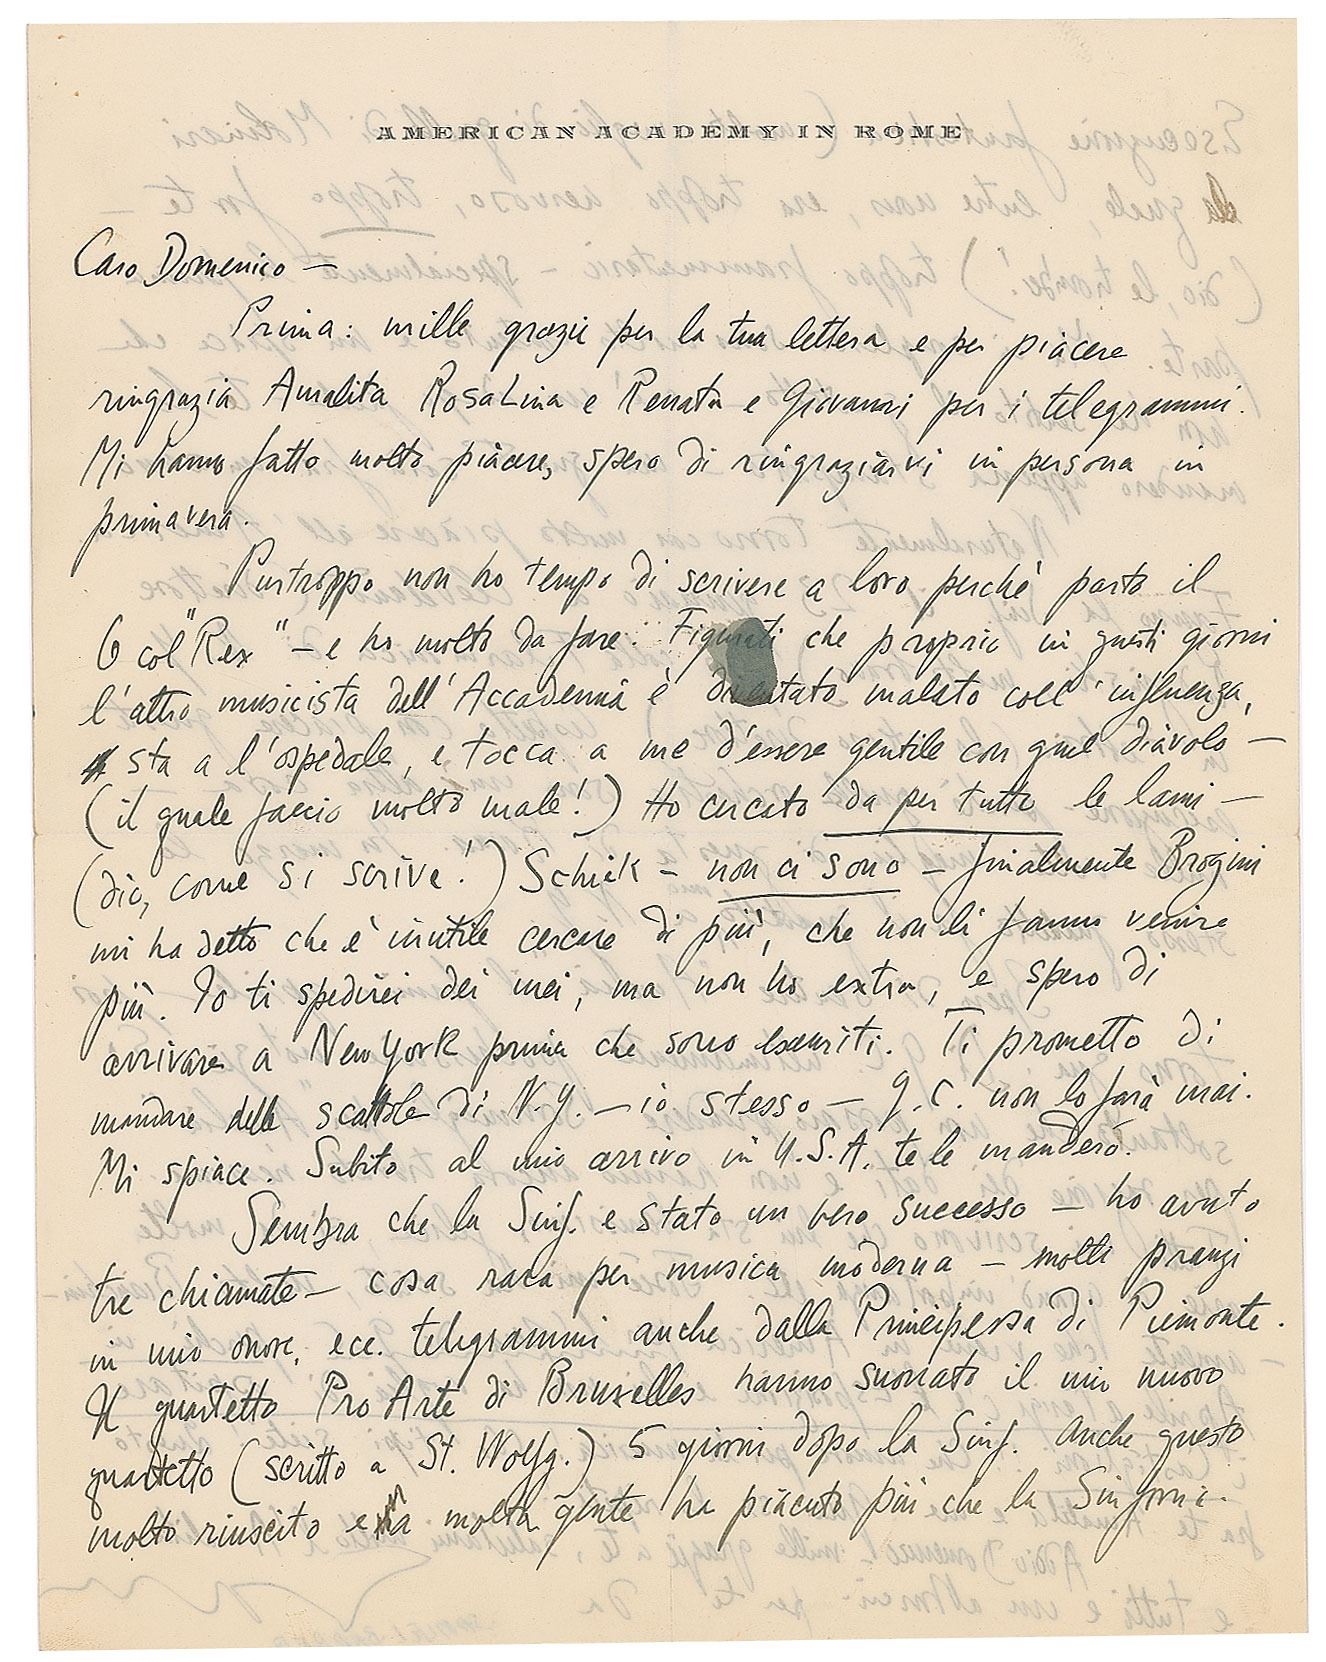 AMERICAN ACADEMY IN ROME
Caro Domenico —
Prima: mille grazie per la tua lettera e per piacere
ringrazia Amalita Rosalina e Renata e Giovanni per i telegrammi.
Mi hanno fatto molto piacere, spero di ringraziarvi in persona in
primavera.
Purtroppo non ho tempo di scrivere a loro perchè parto il
6 col "Rex" — e ho molto da fare. Figurati che proprio in questi giorni
l'altro musicista dell'Accademia è diventato malato coll'influenza,
sta a l'ospedale, e tocca a me d'essere gentile con quel diavolo —
(il quale faccio molto male!) Ho cercato da per tutto le lami —
(dio, come si scrive!) Schick — non ci sono — finalmente Brogini
mi ha detto che è inutile cercare di più, che non li fanno venire
più. Io ti spedirei dei miei, ma non ho extra, e spero di
arrivare a New York prima che sono esauriti. Ti prometto di
mandare delle scattole di N.Y. — io stesso — G.C. non lo farà mai.
Mi spiace. Subito al mio arrivo in U.S.A. te le manderò.
Sembra che la Sinf. e stato un vero successo — ho avuto
tre chiamate — cosa rara per musica moderna — molti pranzi
in mio onore, ecc. telegrammi anche dalla Principessa di Piemonte.
Il quartetto Pro Arte di Bruxelles hanno suonato il mio nuovo
quartetto (scritto a St. Wolfg.) 5 giorni dopo la Sinf. Anche questo
molto riuscito e a molta gente ha piaciuto più che la Sinfoni-